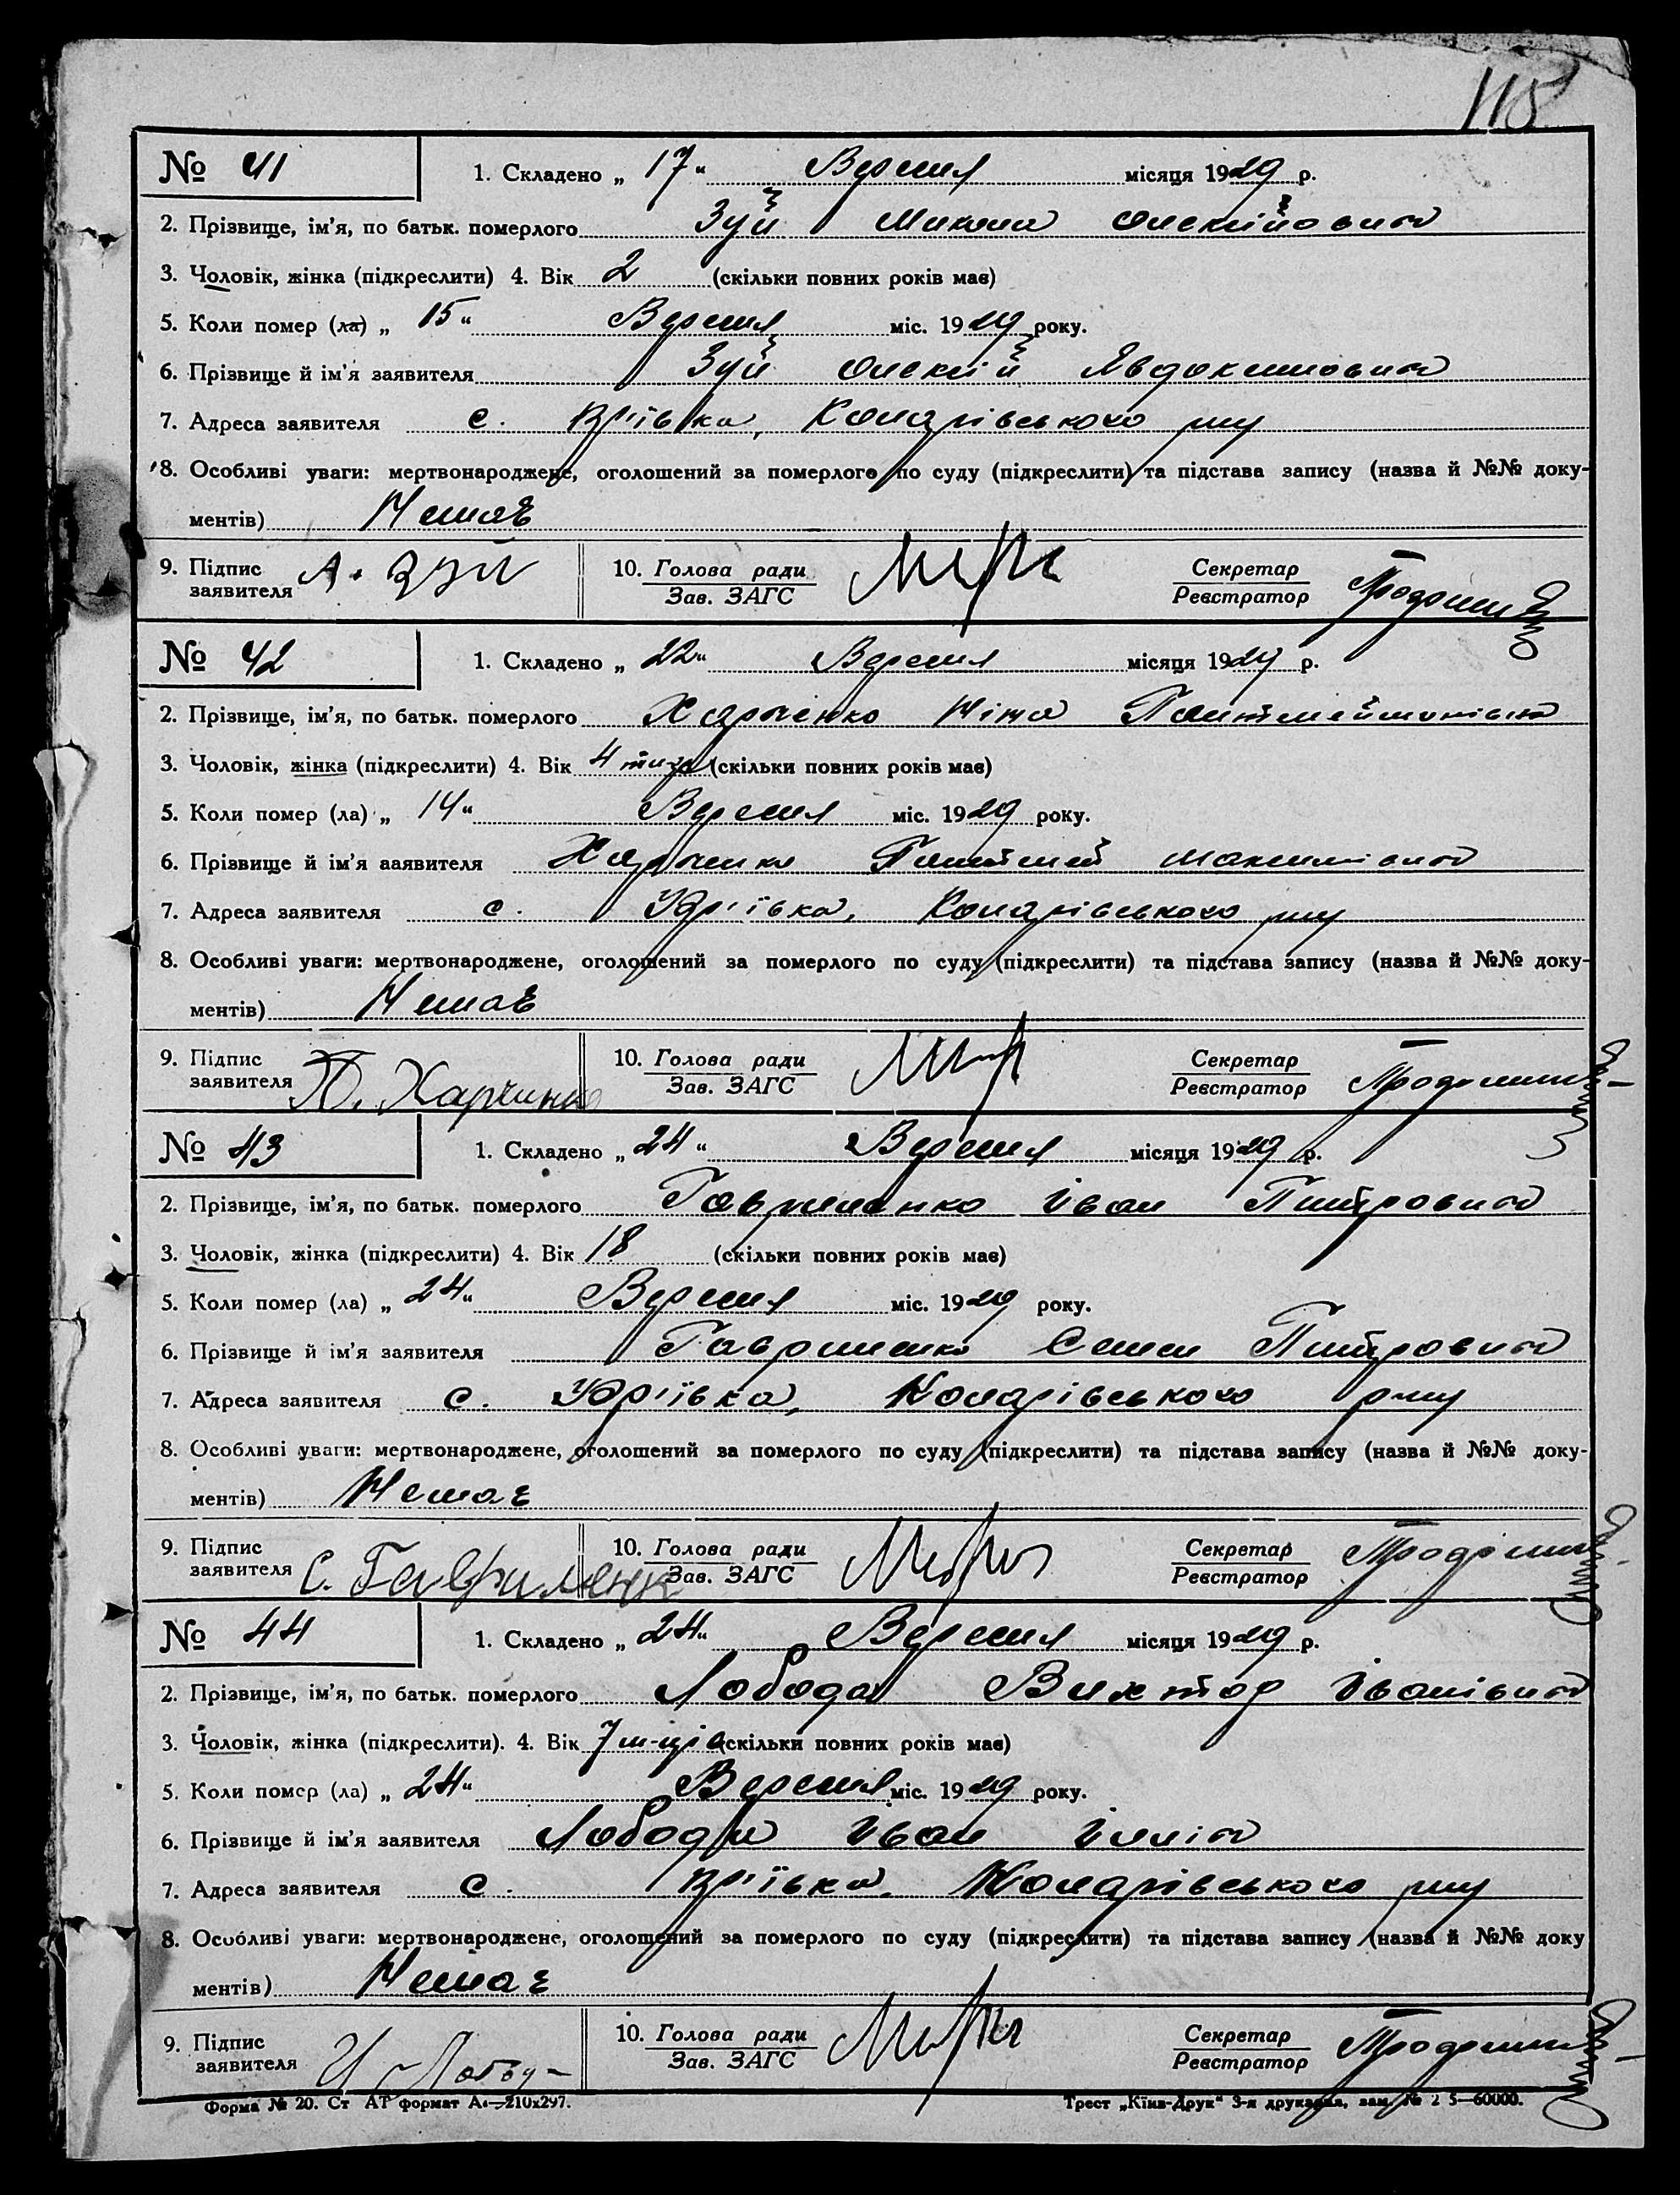 115
№ 41 1. Складено „ 17 “ Вересня місяця 1929 р.
2. Прізвище, ім'я, по батьк. померлого Зуй Микола Олексійович
3. Чоловік, жінка (підкреслити) 4. Вік 2 (скільки повних років має)
5. Коли помер (ла) „ 15 “ Вересня міс. 1929 року.
6. Прізвище й ім'я заявителя Зуй Олексій Явдокимович
7. Адреса заявителя с. Юріївка, Комарівського р-ну
8. Особливі уваги: мертвонароджене, оголошений за померлого по суду (підкреслити) та підстава запису (назва й №№ доку-
ментів) Немає
9. Підпис заявителя А. Зуй 10. Голова ради Зав. ЗАГС Секретар Реєстратор
№ 42 1. Складено „ 22 “ Вересня місяця 1929 р.
2. Прізвище, ім'я, по батьк. померлого Харченко Ніна Пантилеймонівна
3. Чоловік, жінка (підкреслити) 4. Вік 4 (скільки повних років має)
5. Коли помер (ла) „ 14 “ Вересня міс. 1929 року.
6. Прізвище й ім'я ааявителя Харченко Максимович
7. Адреса заявителя с. Юріївка, Комарівського р-ну
8. Особливі уваги: мертвонароджене, оголошений за померлого по суду (підкреслити) та підстава запису (назва й №№ доку-
ментів) Немає
9. Підпис заявителя П. Харченко 10. Голова ради Зав. ЗАГС Секретар Реєстратор
№ 43 1. Складено „ 24 “ Вересня місяця 1929 р.
2. Прізвище, ім'я, по батьк. померлого Гавриленко Іван Питрович
3. Чоловік, жінка (підкреслити) 4. Вік 18 (скільки повних років має)
5. Коли помер (ла) „ 24 “ Вересня міс. 1929 року.
6. Прізвище й ім'я заявителя Гавриленко Семен Питрович
7. Адреса заявителя с. Юріївка, Комарівського р-ну
8. Особливі уваги: мертвонароджене, оголошений за померлого по суду (підкреслити) та підстава запису (назва й №№ доку-
ментів) Немає
9. Підпис заявителя С. Гавриленк 10. Голова ради Зав. ЗАГС Секретар Реєстратор
№ 44 1. Складено „ 24 “ Вересня місяця 1929 р.
2. Прізвище, ім'я, по батьк. померлого Лобода Виктор Іванівич
3. Чоловік, жінка (підкреслити). 4. Вік 7 м-ців (скільки повних років має)
5. Коли помер (ла) „ 24 “ Вересня міс. 1929 року.
6. Прізвище й ім'я заявителя Лобода Іван Ілліч
7. Адреса заявителя с. Юріївка, Комарівського р-ну
8. Особливі уваги: мертвонароджене, оголошений за померлого по суду (підкреслити) та підстава запису (назва й №№ доку
ментів) Немає
9. Підпис заявителя И Лобод 10. Голова ради Зав. ЗАГС Секретар Реєстратор
Форма № 20. Ст АТ формат А₄—210х297. Трест „Київ-Друк“ 3-я друкарня, зам. № 2 5—60000.